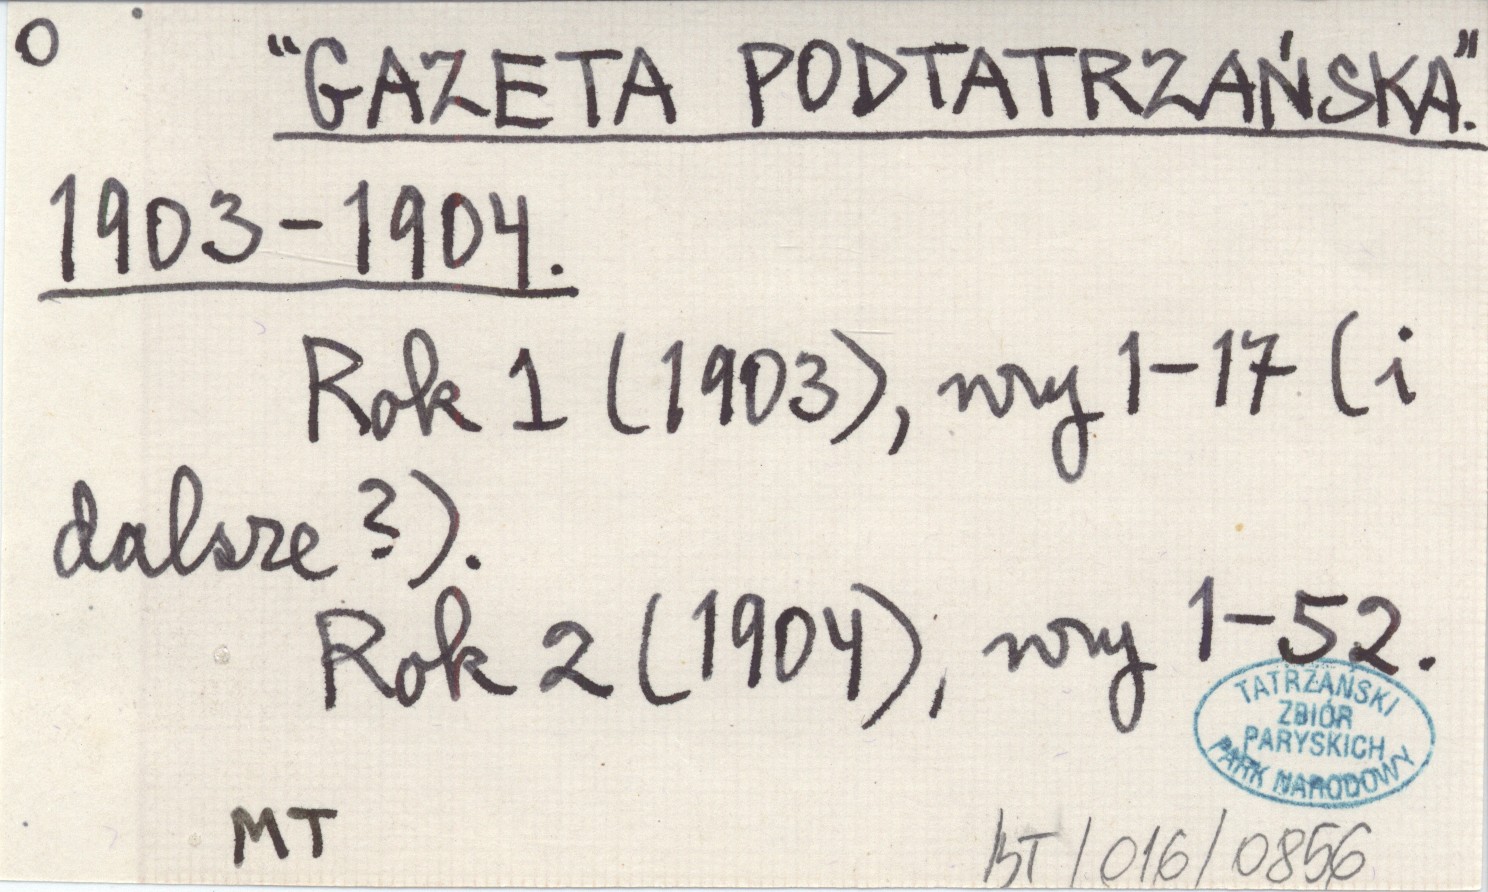 O
“GAZETA PODTATRZAŃSKA”.
1903-1904.
Rok 1 (1903), nry 1-17 (i
dalsze?).
Rok 2 (1904), nry 1-52.
TATRZAŃSKI
ZBIÓR
PARYSKICH
PARK NARODOWY
MT
BT/016/0856